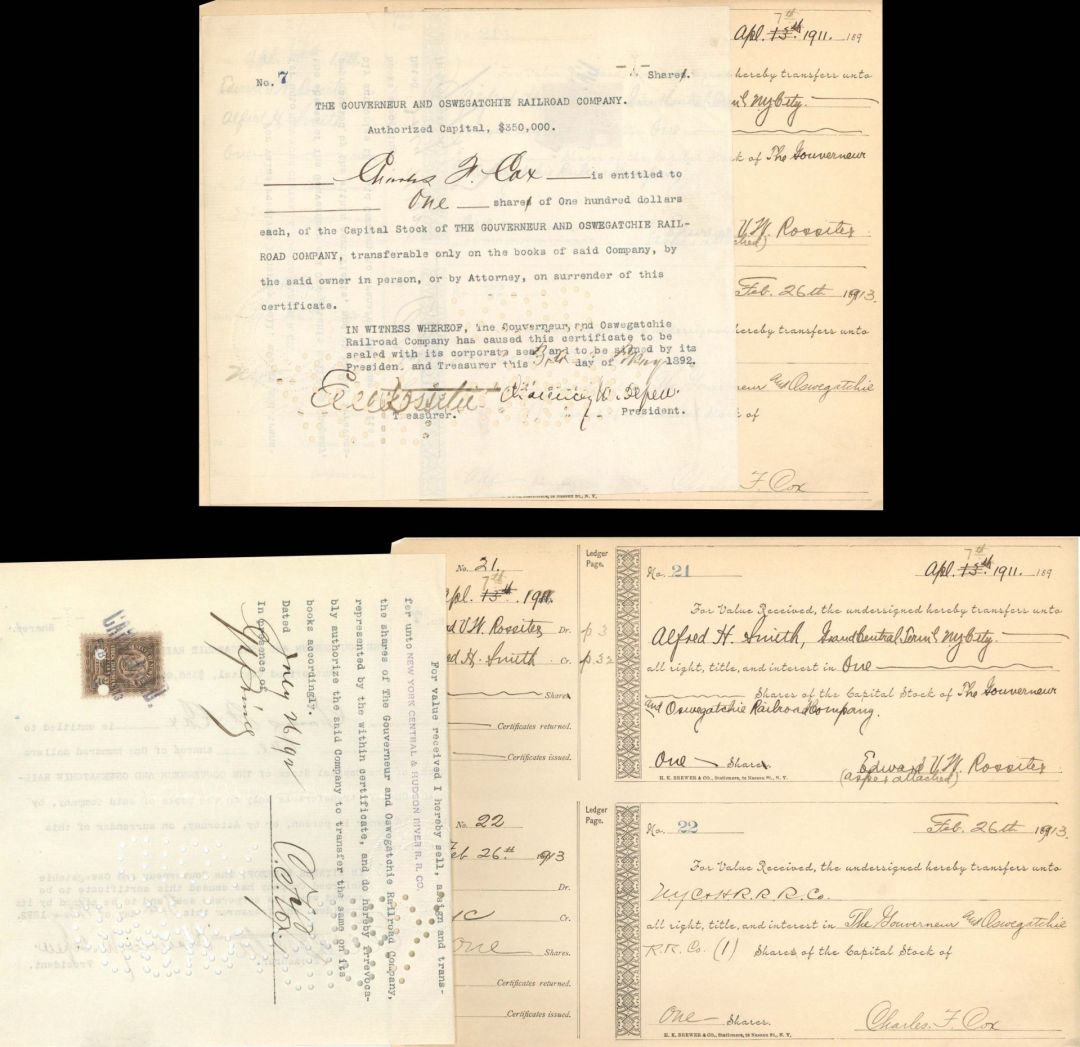 No. 7
-1- Share.
THE GOUVERNEUR AND OSWEGATCHIE RAILROAD COMPANY.
Authorized Capital, $350,000.
Charles F. Cox is entitled to
One shares of One hundred dollars
each, of the Capital Stock of THE GOUVERNEUR AND OSWEGATCHIE RAIL-
ROAD COMPANY, transferable only on the books of said Company, by
the said owner in person, or by Attorney, on surrender of this
certificate.
IN WITNESS WHEREOF, The Gouverneur and Oswegatchie
Railroad Company has caused this certificate to be
sealed with its corporate seal and to be signed by its
President and Treasurer this 3rd day of May 1892.
E V W Rossiter Chauncey M. Depew
Treasurer. President.
7th
Apl. 13th. 1911. 189
hereby transfers unto
NyCity.
k of The Gouverneur
V.W. Rossiter
Feb. 26th 1913.
hereby transfers unto
neur and Oswegatchie
k of
F. Cox
For value received I hereby sell, assign and trans-
fer unto NEW YORK CENTRAL & HUDSON RIVER R. R. CO.
the shares of The Gouverneur and Oswegatchie Railroad Company,
represented by the within certificate, and do hereby irrevoca-
bly authorize the said Company to transfer the same on its
books accordingly.
Dated
In presence of
C. F. Cox
No. 21.
7th
Apl. 13th. 1911.
d V.W. Rossiter Dr. p 3
ed H. Smith Cr. p. 32
Shares,
Certificates returned.
Certificates issued.
Ledger
Page.
No. 21
7th
Apl. 13th. 1911. 189
For Value Received, the undersigned hereby transfers unto
Alfred H. Smith, Grand Central Term'l NyCity.
all right, title, and interest in One
Shares of the Capital Stock of The Gouverneur
and Oswegatchie Railroad Company.
One Shares.
Edward V.W. Rossiter
(as per attached)
H. K. BREWER & CO., Stationers, 16 Nassau St., N. Y.
No. 22
Feb 26th 1913
Dr.
Cr.
One Shares.
Certificates returned.
Certificates issued.
Ledger
Page.
No. 22
Feb. 26th 1913.
For Value Received, the undersigned hereby transfers unto
NYC&HRRR.Co.
all right, title, and interest in The Gouverneur and Oswegatchie
R.R. Co. (1) Shares of the Capital Stock of
One Shares.
Charles F. Cox
H. K. BREWER & CO., Stationers, 16 Nassau St., N. Y.